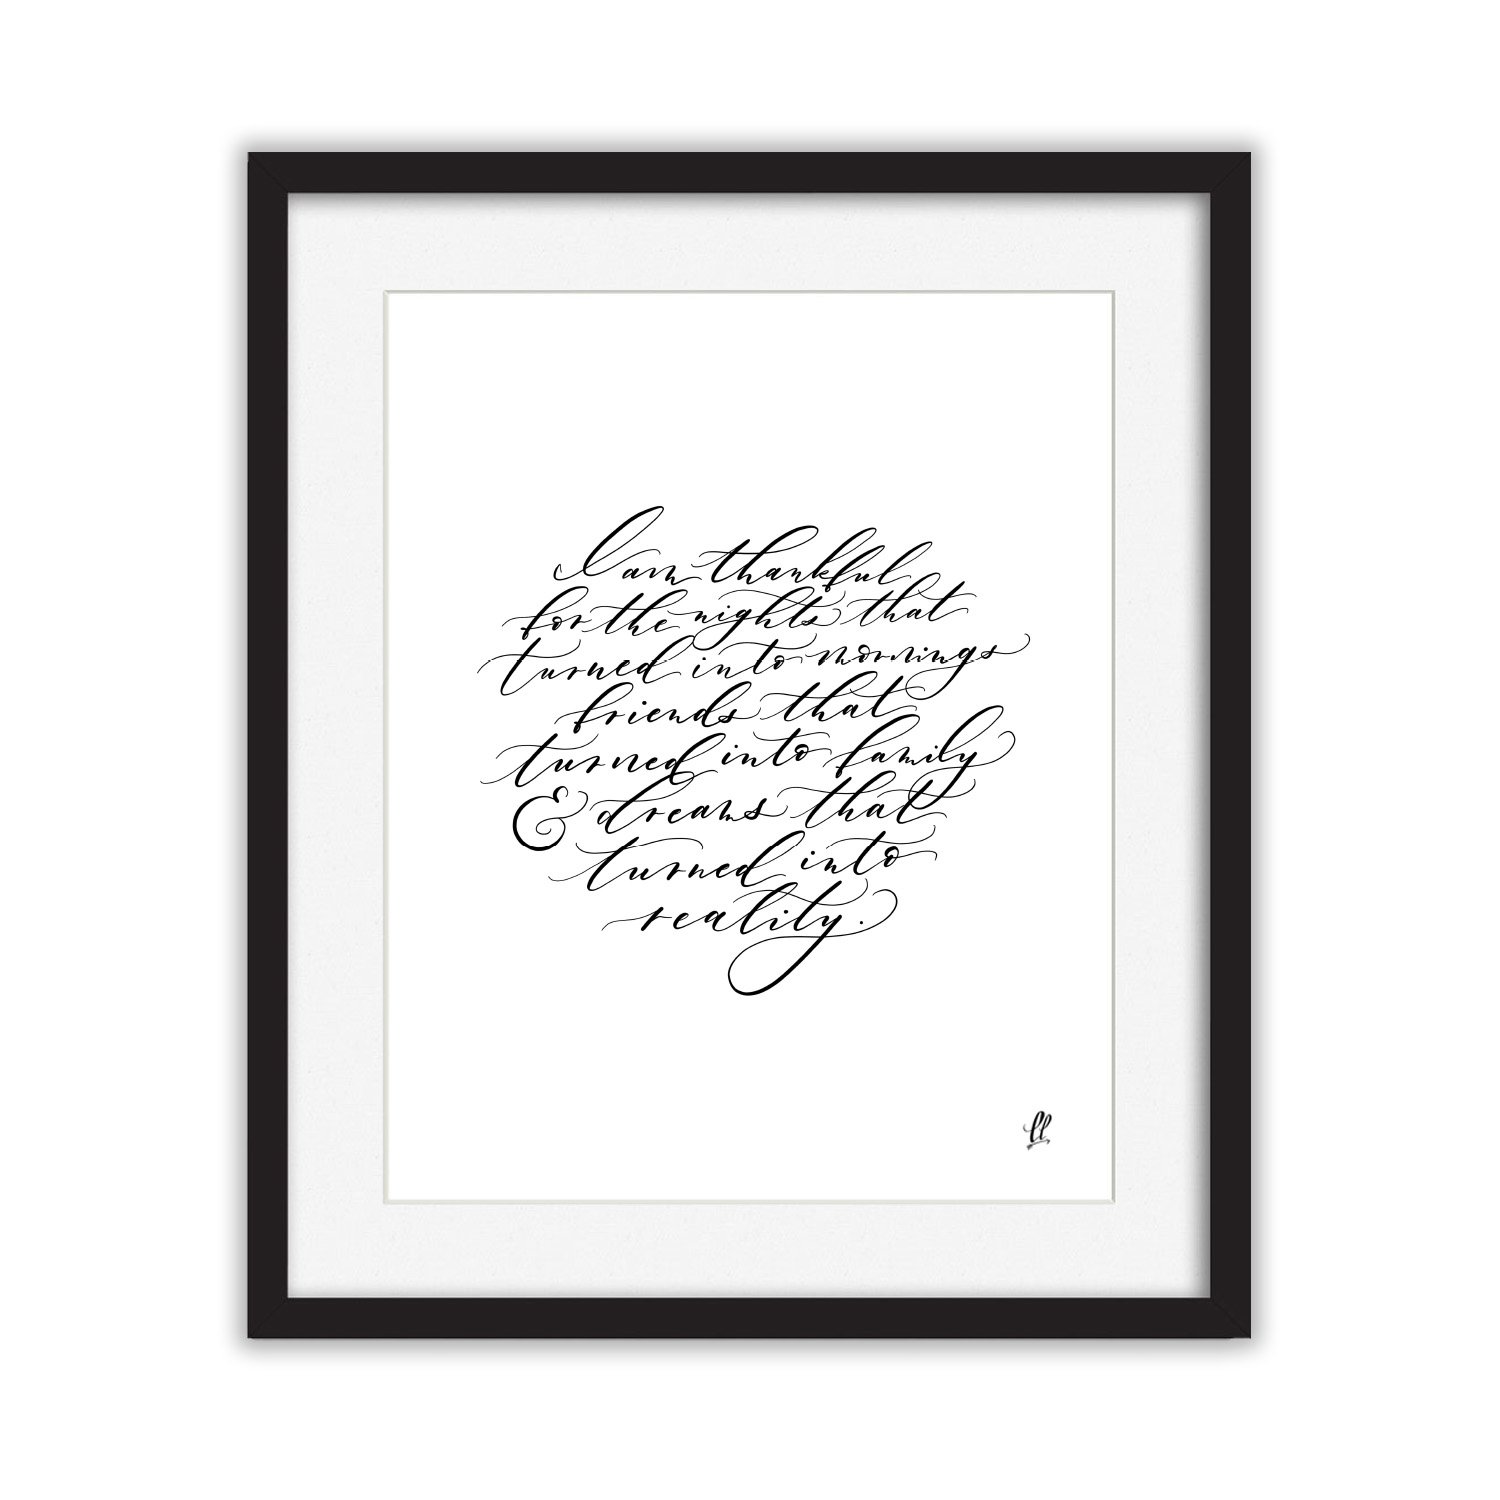 I am thankful
for the nights that
turned into mornings
friends that
turned into family
& dreams that
turned into
reality.
ll